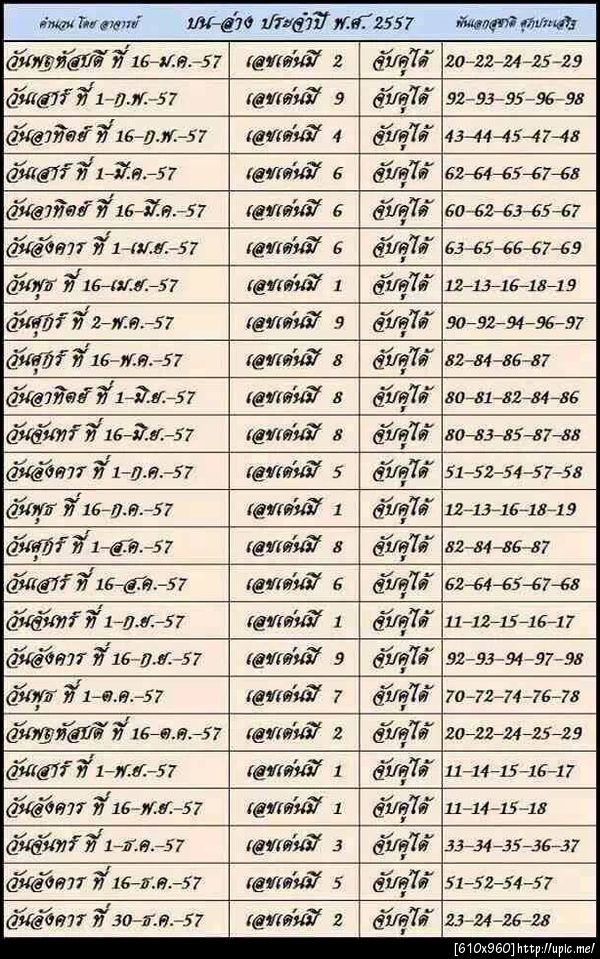 คำนวน โดย อาจารย์ บน-ล่าง ประจำปี พ.ศ. 2557 พันเอกสุชาติ ศุภประเสริฐ
วันพฤหัสบดี ที่ 16-ม.ค.-57 เลขเด่นมี 2 จับคู่ได้ 20-22-24-25-29
วันเสาร์ ที่ 1-ก.พ.-57 เลขเด่นมี 9 จับคู่ได้ 92-93-95-96-98
วันอาทิตย์ ที่ 16-ก.พ.-57 เลขเด่นมี 4 จับคู่ได้ 43-44-45-47-48
วันเสาร์ ที่ 1-มี.ค.-57 เลขเด่นมี 6 จับคู่ได้ 62-64-65-67-68
วันอาทิตย์ ที่ 16-มี.ค.-57 เลขเด่นมี 6 จับคู่ได้ 60-62-63-65-67
วันอังคาร ที่ 1-เม.ย.-57 เลขเด่นมี 6 จับคู่ได้ 63-65-66-67-69
วันพุธ ที่ 16-เม.ย.-57 เลขเด่นมี 1 จับคู่ได้ 12-13-16-18-19
วันศุกร์ ที่ 2-พ.ค.-57 เลขเด่นมี 9 จับคู่ได้ 90-92-94-96-97
วันศุกร์ ที่ 16-พ.ค.-57 เลขเด่นมี 8 จับคู่ได้ 82-84-86-87
วันอาทิตย์ ที่ 1-มิ.ย.-57 เลขเด่นมี 8 จับคู่ได้ 80-81-82-84-86
วันจันทร์ ที่ 16-มิ.ย.-57 เลขเด่นมี 8 จับคู่ได้ 80-83-85-87-88
วันอังคาร ที่ 1-ก.ค.-57 เลขเด่นมี 5 จับคู่ได้ 51-52-54-57-58
วันพุธ ที่ 16-ก.ค.-57 เลขเด่นมี 1 จับคู่ได้ 12-13-16-18-19
วันศุกร์ ที่ 1-ส.ค.-57 เลขเด่นมี 8 จับคู่ได้ 82-84-86-87
วันเสาร์ ที่ 16-ส.ค.-57 เลขเด่นมี 6 จับคู่ได้ 62-64-65-67-68
วันจันทร์ ที่ 1-ก.ย.-57 เลขเด่นมี 1 จับคู่ได้ 11-12-15-16-17
วันอังคาร ที่ 16-ก.ย.-57 เลขเด่นมี 9 จับคู่ได้ 92-93-94-97-98
วันพุธ ที่ 1-ต.ค.-57 เลขเด่นมี 7 จับคู่ได้ 70-72-74-76-78
วันพฤหัสบดี ที่ 16-ต.ค.-57 เลขเด่นมี 2 จับคู่ได้ 20-22-24-25-29
วันเสาร์ ที่ 1-พ.ย.-57 เลขเด่นมี 1 จับคู่ได้ 11-14-15-16-17
วันอังคาร ที่ 16-พ.ย.-57 เลขเด่นมี 1 จับคู่ได้ 11-14-15-18
วันจันทร์ ที่ 1-ธ.ค.-57 เลขเด่นมี 3 จับคู่ได้ 33-34-35-36-37
วันอังคาร ที่ 16-ธ.ค.-57 เลขเด่นมี 5 จับคู่ได้ 51-52-54-57
วันอังคาร ที่ 30-ธ.ค.-57 เลขเด่นมี 2 จับคู่ได้ 23-24-26-28
[610x960]http://upic.me/